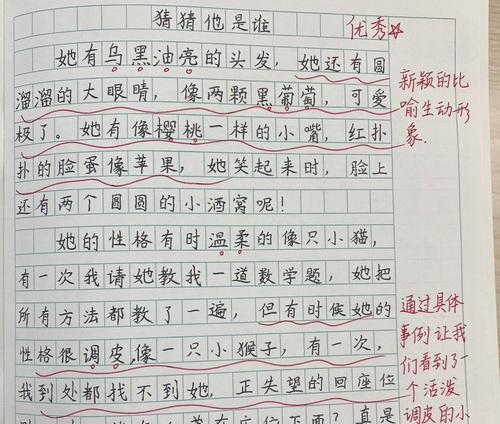 猜猜他是谁
优秀
她有乌黑油亮的头发，她还有圆
溜溜的大眼睛，像两颗黑葡萄，可爱
极了。她有像樱桃一样的小嘴，红扑
扑的脸蛋像苹果，她笑起来时，脸上
还有两个圆圆的小酒窝呢！
新颖的比
喻生动形
象.
她的性格有时温柔的像只小猫，
有一次我请她教我一道数学题，她把
所有方法都教了一遍，但有时候她的
性格很调皮，像一只小猴子，有一次，
我到处都找不到她，正失望的回座位
在座位下面？直是
通过具体
事例让我
们看到了一
个活泼
调皮的小